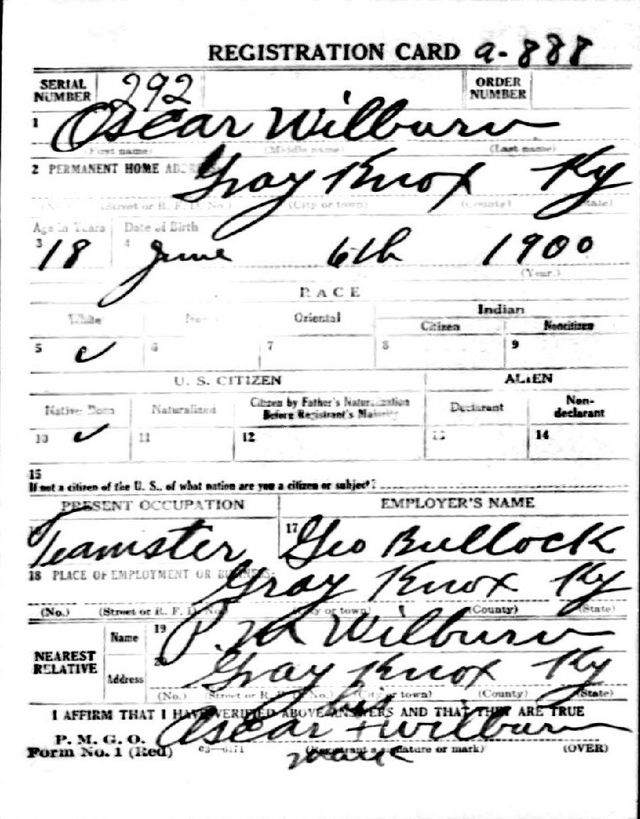 REGISTRATION CARD a-888
SERIAL NUMBER 292 ORDER NUMBER
1 Oscar Wilburn
(First name) (Middle name) (Last name)
2 PERMANENT HOME ADDRESS Gray Knox Ky
(No.) (Street or R. F. D. No.) (City or town) (County) (State)
Age in Years Date of Birth
3 18 4 June 6th 1900
(Year.)
RACE
White Oriental Indian
Citizen Noncitizen
5 ✓ 6 7 8 9
U. S. CITIZEN ALIEN
Native Born Naturalized Citizen by Father's Naturalization Before Registrant's Majority Declarant Non-declarant
10 ✓ 11 12 13 14
15
If not a citizen of the U. S., of what nation are you a citizen or subject?
PRESENT OCCUPATION EMPLOYER'S NAME
Teamster 17 Geo Bullock
18 PLACE OF EMPLOYMENT OR BUSINESS Gray Knox Ky
(No.) (Street or R. F. D. No.) (City or town) (County) (State)
NEAREST RELATIVE Name 19 P. M Wilburn
Address 20 Gray Knox Ky
(No.) (Street or R. F. D. No.) (City or town) (County) (State)
I AFFIRM THAT I HAVE VERIFIED ABOVE ANSWERS AND THAT THEY ARE TRUE
his
P. M. G. O. Oscar + Wilburn
Form No. 1 (Red) 03—6171 (Registrant's signature or mark) (OVER)
mark